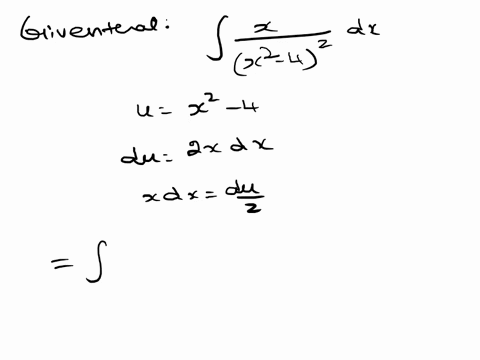 Giventeral: ∫ x/(x²-4)² dx
u = x² - 4
du = 2x dx
x dx = du/2
= ∫